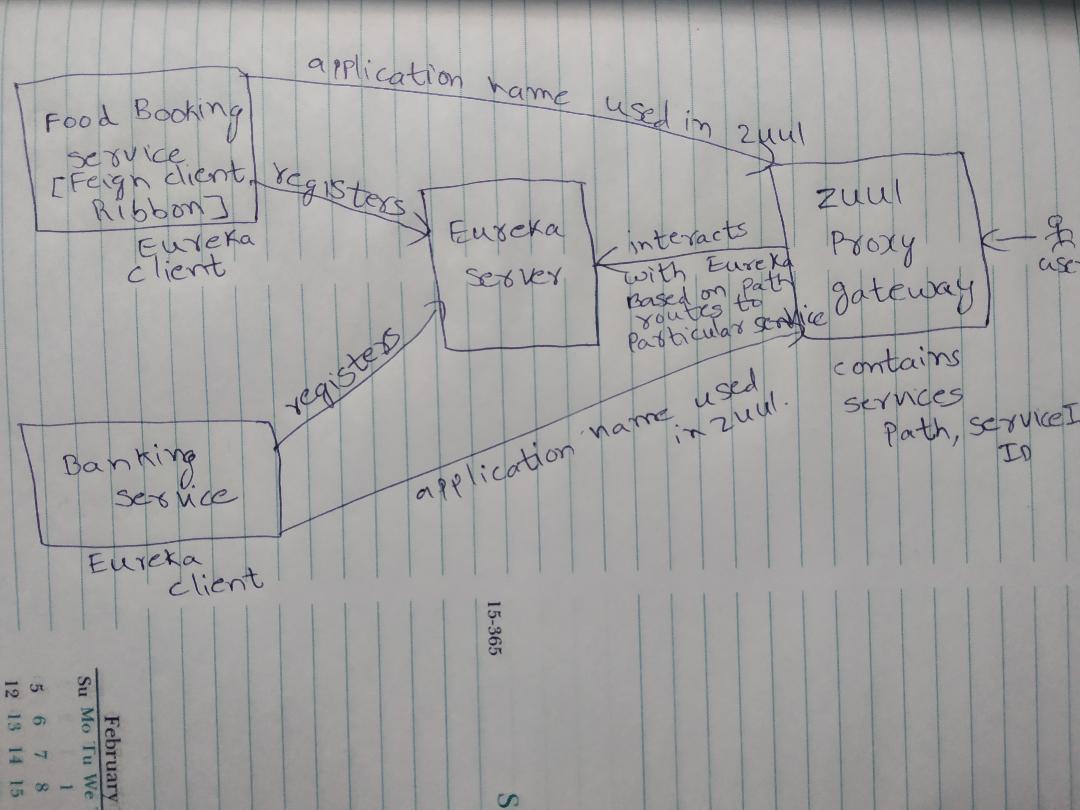 application name used in zuul
Food Booking
service
[Feign client,
Ribbon]
Eureka
client
registers
Eureka
server
interacts
with Eureka
Based on Path
routes to
Particular service
zuul
Proxy
gateway
use
contains
services
Path, serviceI
ID
registers
application name used
in zuul.
Banking
service
Eureka
client
15-365
February
Su Mo Tu We
1
5 6 7 8
12 13 14 15
S